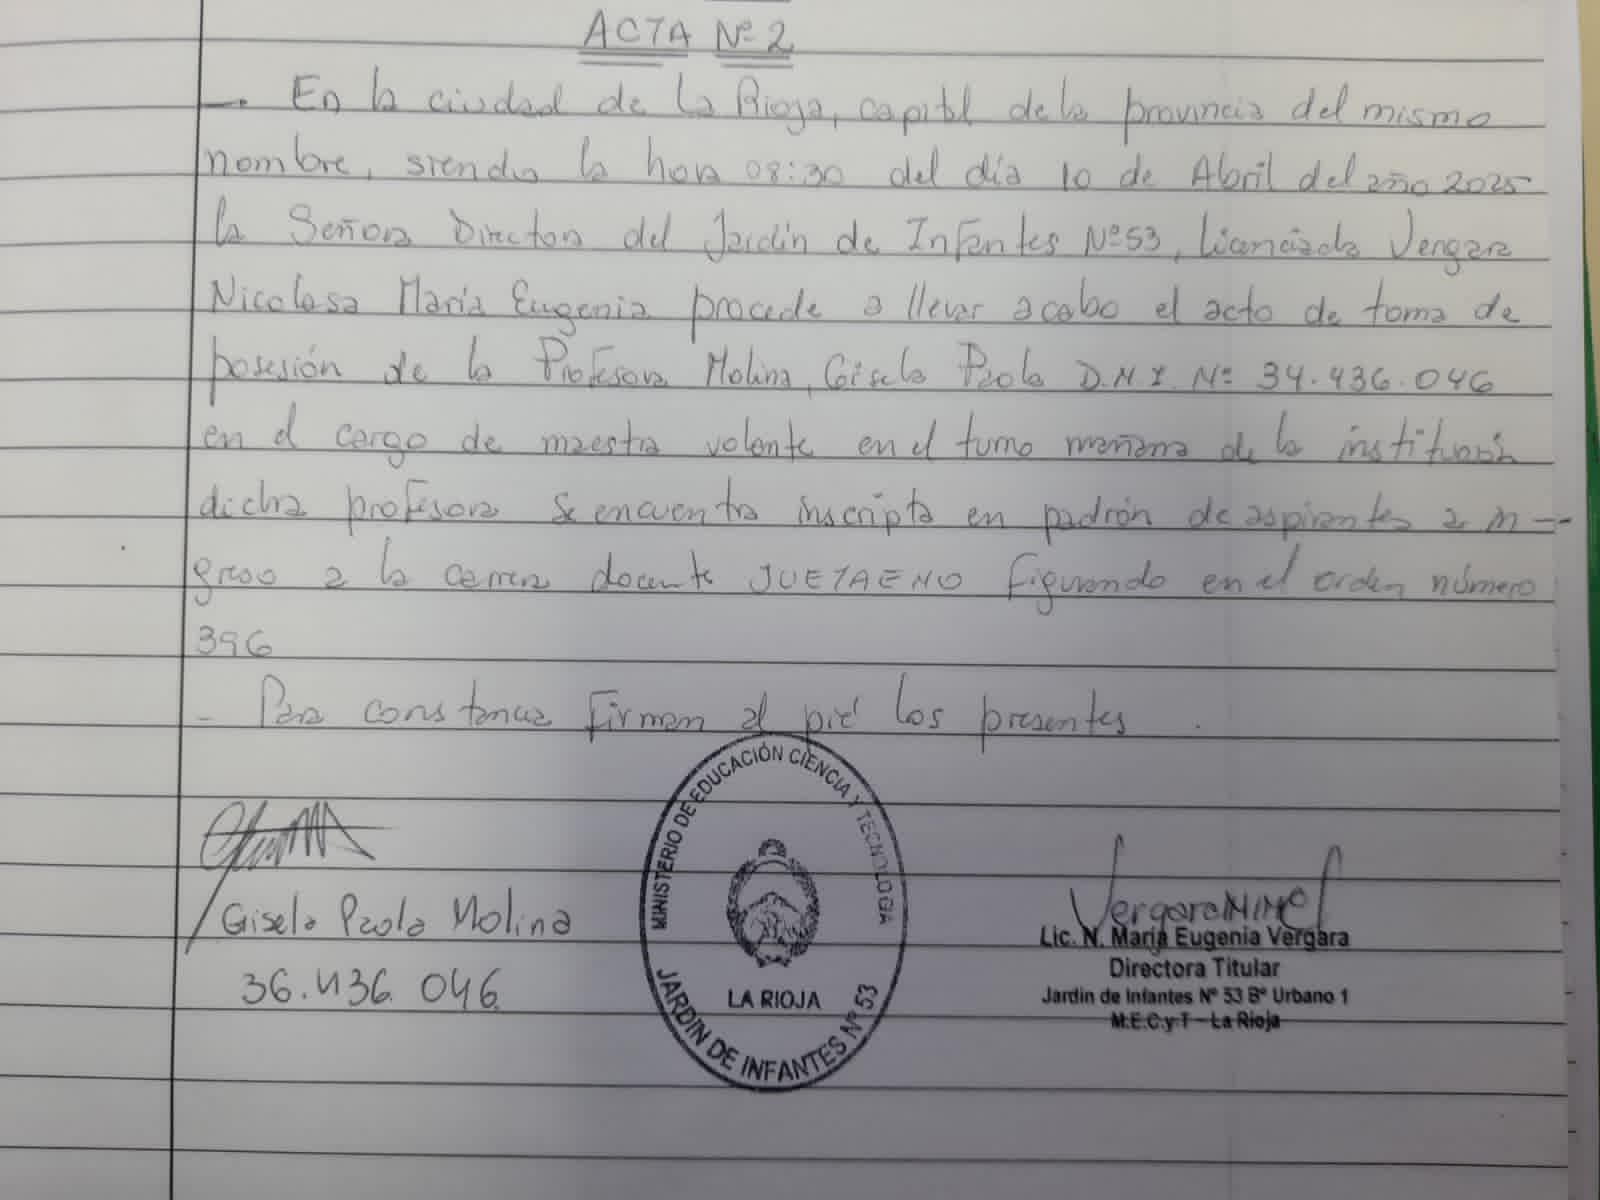 ACTA Nº 2
—. En la ciudad de La Rioja, capital de la provincia del mismo
nombre, siendo la hora 08:30 del día 10 de Abril del año 2025
la Señora Directora del Jardín de Infantes Nº 53, Licenciada Vergara
Nicolasa María Eugenia procede a llevar acabo el acto de toma de
posesión de la Profesora Molina, Gisela Paola D.N.I. Nº 34.436.046
en el cargo de maestra volante en el turno mañana de la institución
dicha profesora se encuentra inscripta en padrón de aspirantes a in--
greso a la carrera docente JUETAENO figurando en el orden número
396
- Para constancia firman al pié los presentes.
Gisela Paola Molina
36.436.046
MINISTERIO DE EDUCACIÓN CIENCIA Y TECNOLOGIA
LA RIOJA
JARDIN DE INFANTES Nº 53
Lic. N. María Eugenia Vergara
Directora Titular
Jardin de Infantes Nº 53 Bº Urbano 1
M.E.C.y T - La Rioja